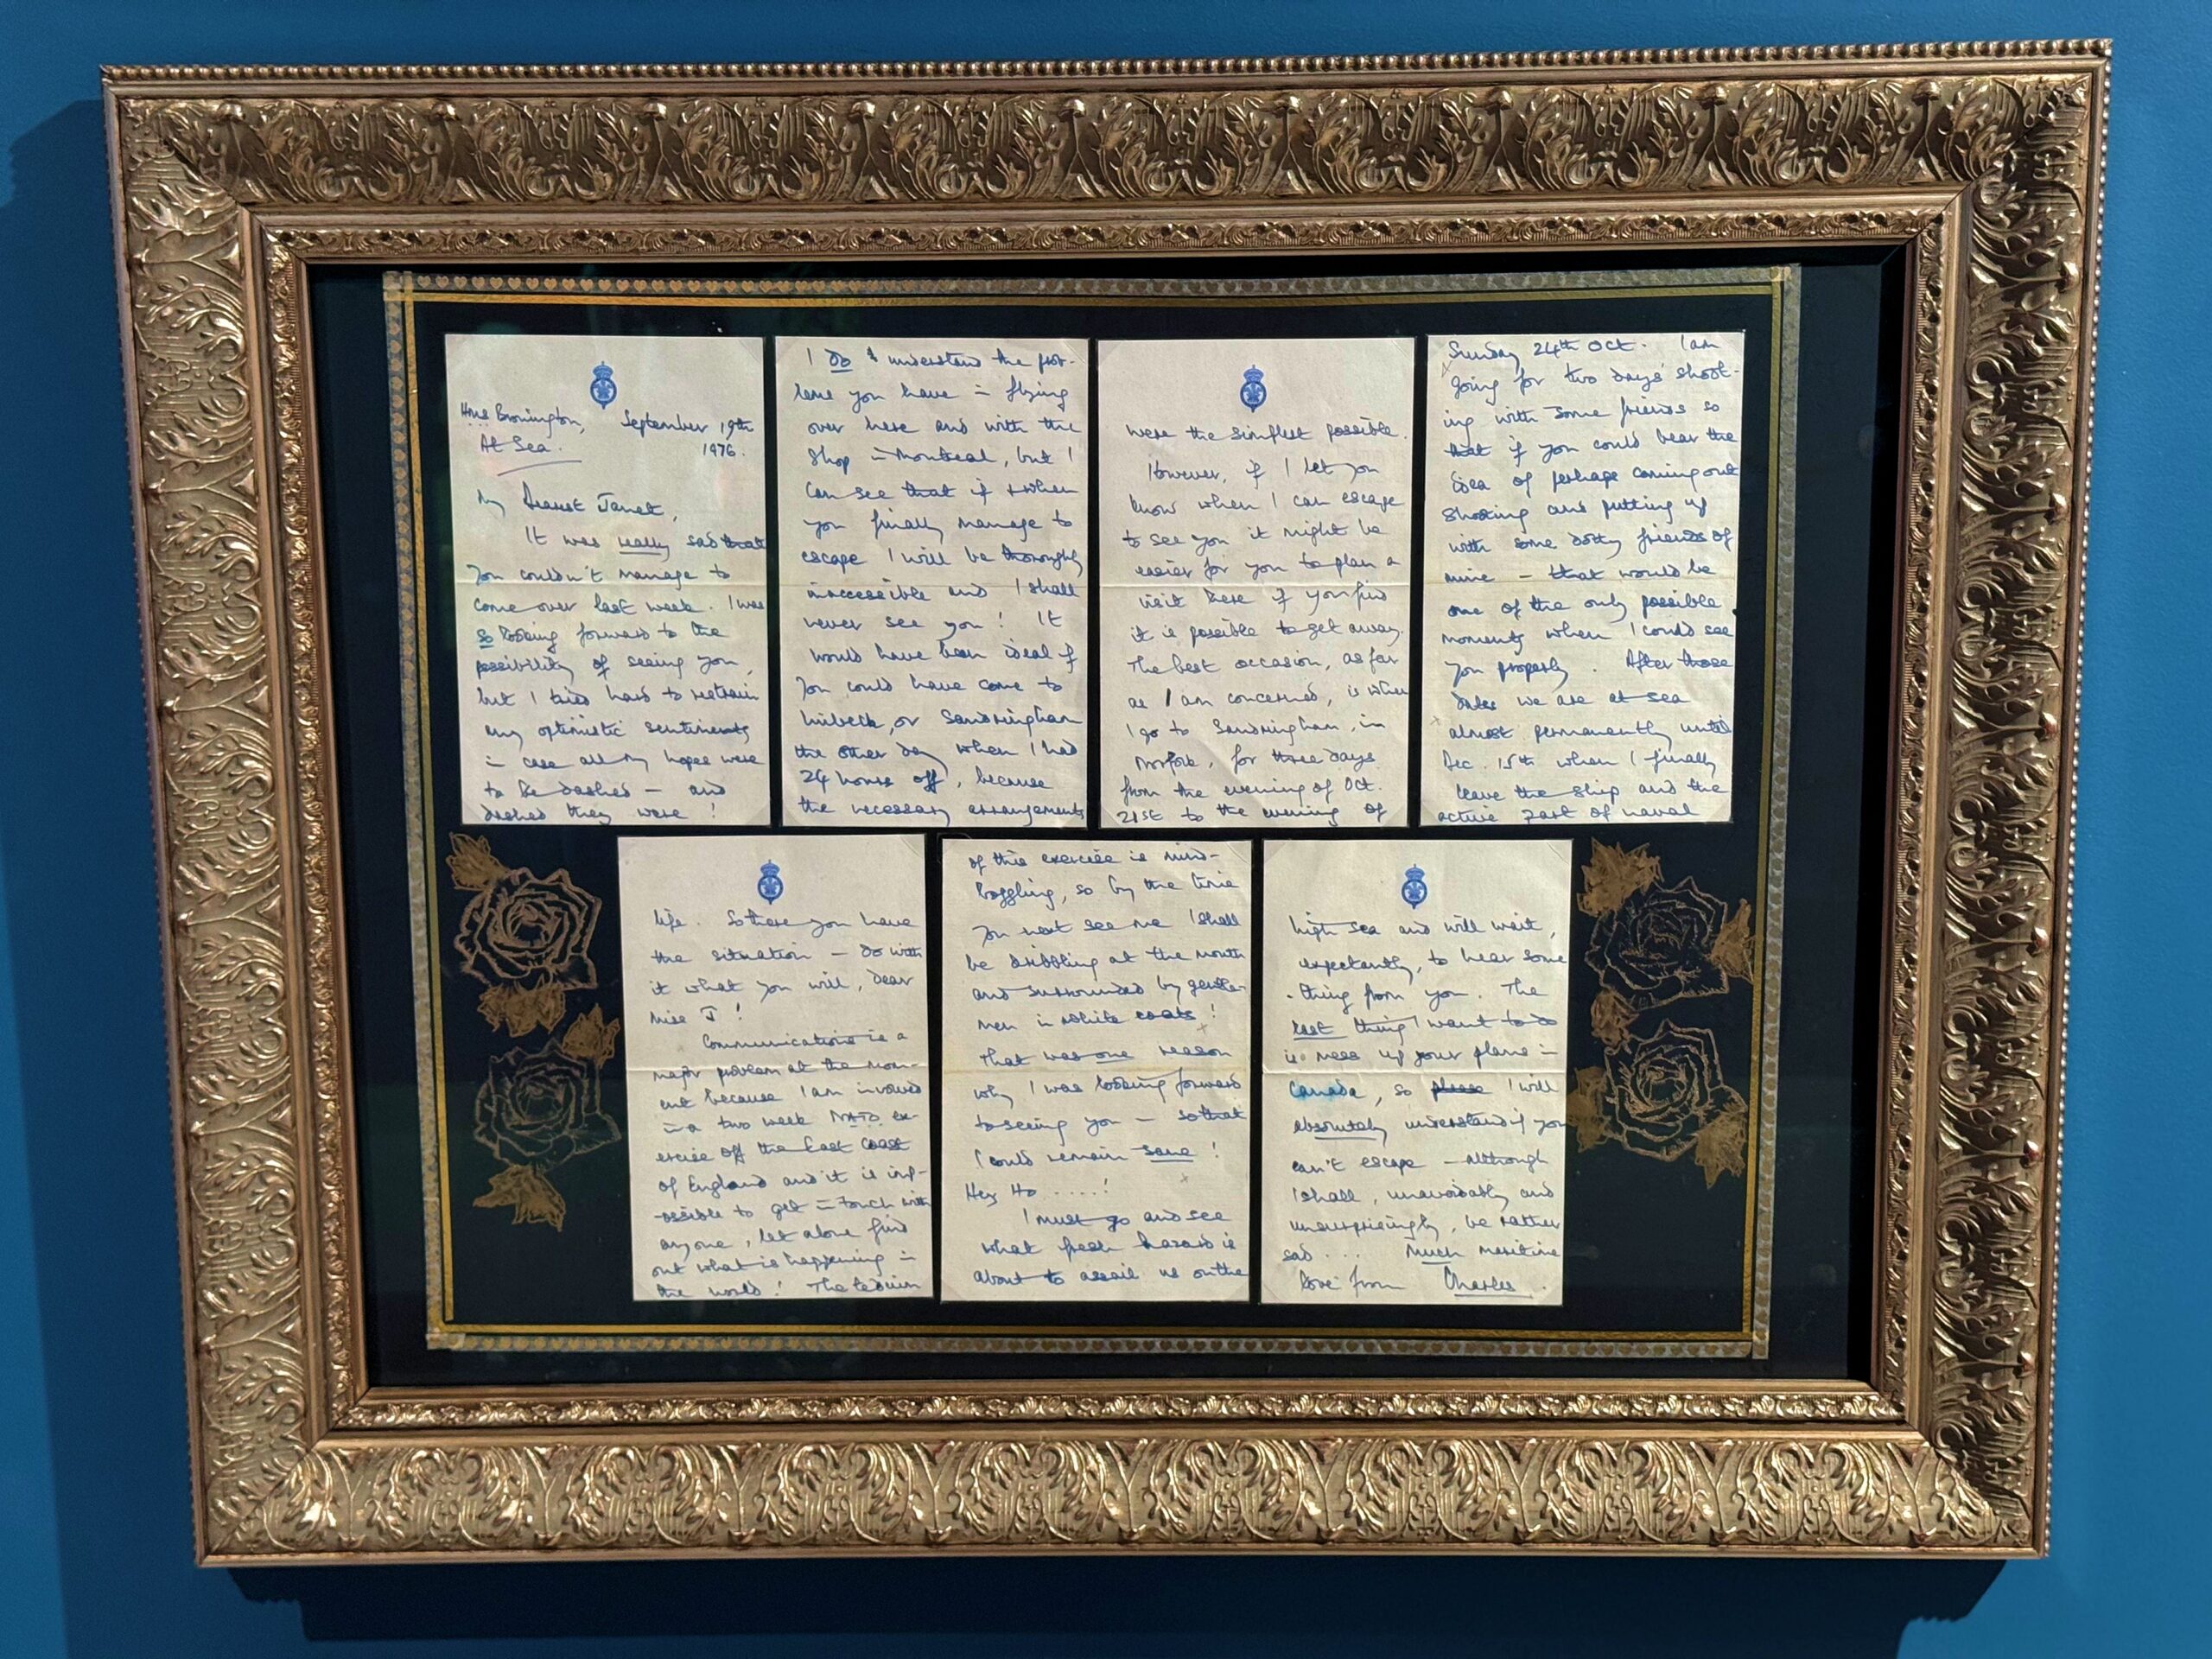 HMS Bronington, September 19th
At Sea. 1976.
My Dearest Janet,
It was really sad that
you couldn't manage to
come over last week. I was
so looking forward to the
possibility of seeing you,
but I tried hard to restrain
any optimistic sentiments
in case all my hopes were
to be dashed – and
dashed they were!
I do understand the prob-
lems you have in flying
over here and with the
shop in Montreal, but I
can see that if & when
you finally manage to
escape I will be thoroughly
inaccessible and I shall
never see you! It
would have been ideal if
you could have come to
or Sandringham
the other day when I had
24 hours off, because
the necessary arrangements
were the simplest possible.
However, if I let you
know when I can escape
to see you it might be
easier for you to plan a
visit here if you find
it is possible to get away.
The best occasion, as far
as I am concerned, is when
I go to Sandringham, in
Norfolk, for three days
from the evening of Oct.
21st to the evening of
Sunday 24th Oct. I am
going for two days' shoot-
ing with some friends so
that if you could bear the
idea of perhaps coming out
shooting and putting up
with some dotty friends of
mine – that would be
one of the only possible
moments when I could see
you properly. After those
dates we are at sea
almost permanently until
Dec. 15th when I finally
leave the ship and the
active part of naval
life. So there you have
the situation – do with
it what you will, dear
Miss J!
Communications is a
major problem at the mom-
ent because I am involved
in a two week NATO ex-
ercise off the East coast
of England and it is imp-
ossible to get in touch with
anyone, let alone find
out what is happening in
the world! The tedium
of this exercise is mind-
boggling, so by the time
you next see me I shall
be dribbling at the mouth
and surrounded by gentle-
men in white coats!
That was one reason
why I was looking forward
to seeing you – so that
I could remain sane!
Hey Ho ....!
I must go and see
what fresh hazard is
about to assail us on the
high sea and will wait,
expectantly, to hear some
-thing from you. The
last thing I want to do
is mess up your plans in
Canada, so please I will
absolutely understand if you
can't escape – although
I shall, unavoidably and
unsurprisingly, be rather
sad .... Much maritime
love from Charles.